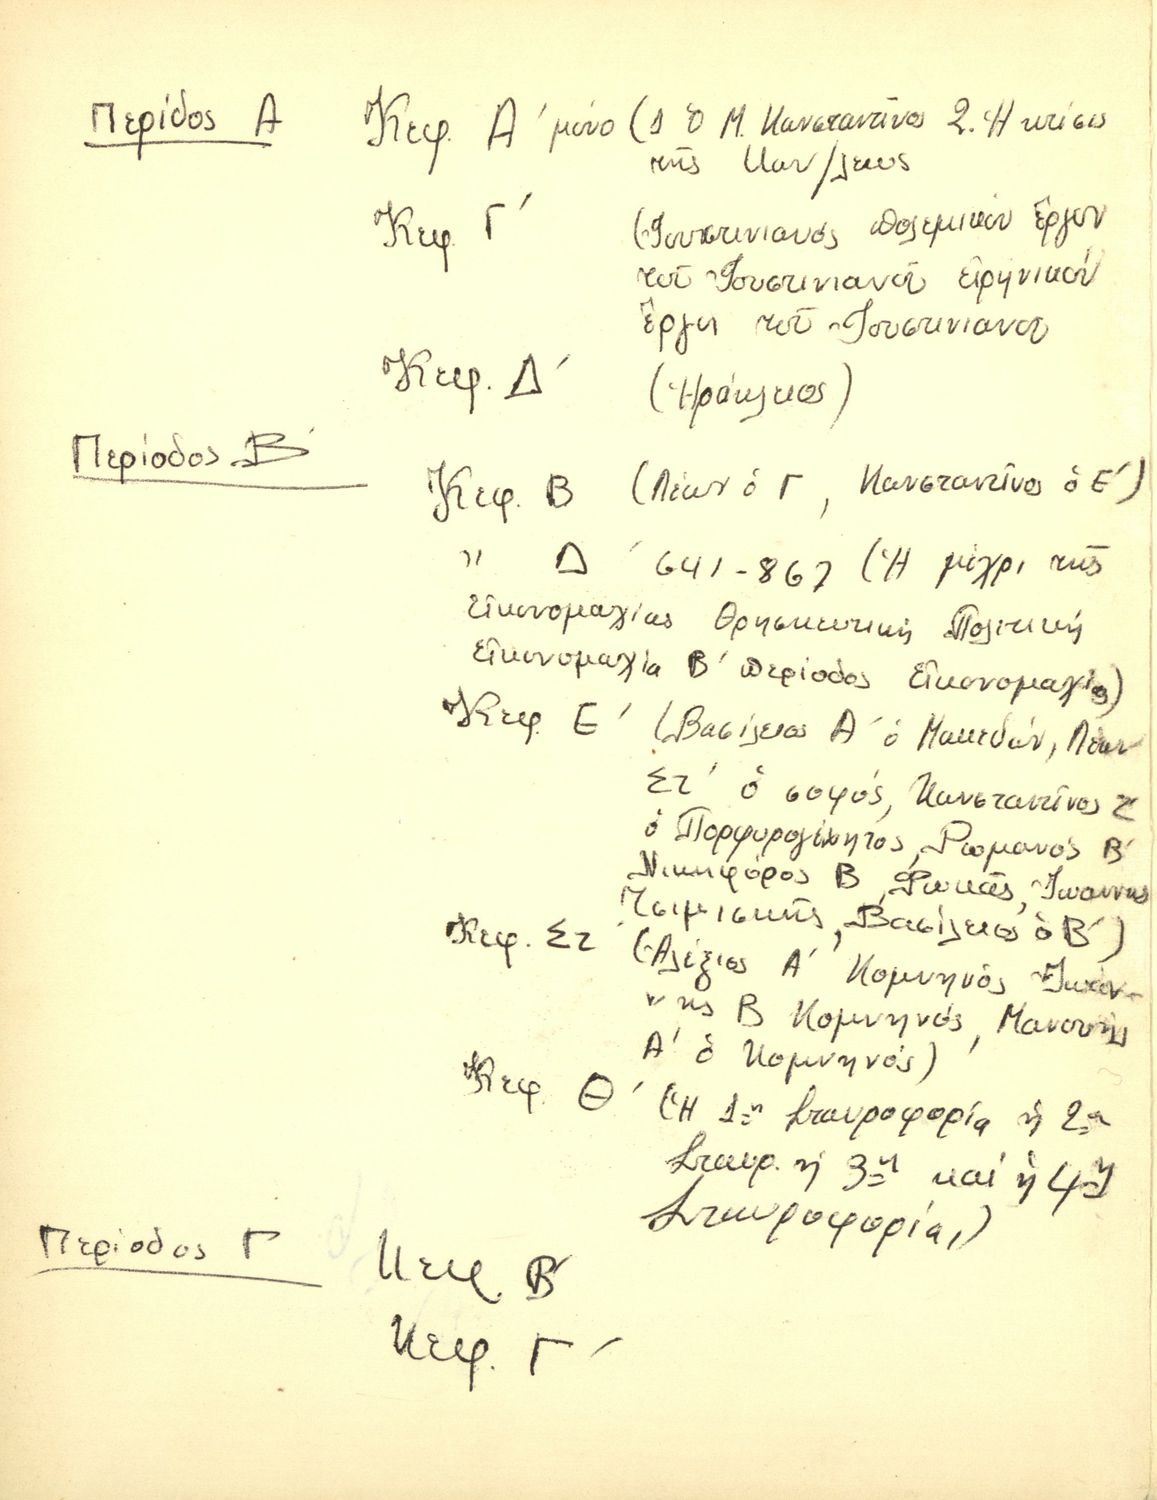 Περίδος Α Κεφ. Α΄ μόνο (1 Ὁ Μ. Κωνσταντῖνος 2. Ἡ κτίσις
τῆς Κων/λεως
Κεφ. Γ΄ (Ἰουστινιανός πολεμικόν ἔργον
τοῦ Ἰουστινιανοῦ εἰρηνικόν
ἔργον τοῦ Ἰουστινιανοῦ
Κεφ. Δ΄ (Ἡράκλειος)
Περίοδος Β΄
Κεφ. Β (Λέων ὁ Γ, Κωνσταντῖνος ὁ Ε΄)
" Δ΄ 641-867 (Ἡ μέχρι τῆς
εἰκονομαχίας θρησκευτική Πολιτική
εἰκονομαχία Β΄ περίοδος εἰκονομαχίας)
Κεφ. Ε΄ (Βασίλειος Α΄ ὁ Μακεδών, Λέων
Στ΄ ὁ σοφός, Κωνσταντῖνος Ζ
ὁ Πορφυρογέννητος, Ρωμανός Β΄
Νικηφόρος Β, Φωκᾶς, Ἰωάννης
Τσιμισκῆς, Βασίλειος ὁ Β΄)
Κεφ. Στ΄ (Ἀλέξιος Α΄ Κομνηνός Ἰωάν-
νης Β Κομνηνός, Μανουήλ
Α΄ ὁ Κομνηνός)
Κεφ. Θ΄ (Ἡ 1η Σταυροφορία ἡ 2α
Σταυρ. ἡ 3η καί ἡ 4η
Σταυροφορία,)
Περίοδος Γ Κεφ. Β΄
Κεφ. Γ΄